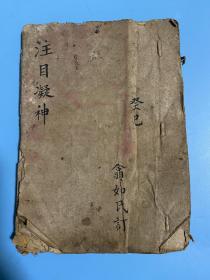 癸巳
翕如民訂
注目凝神